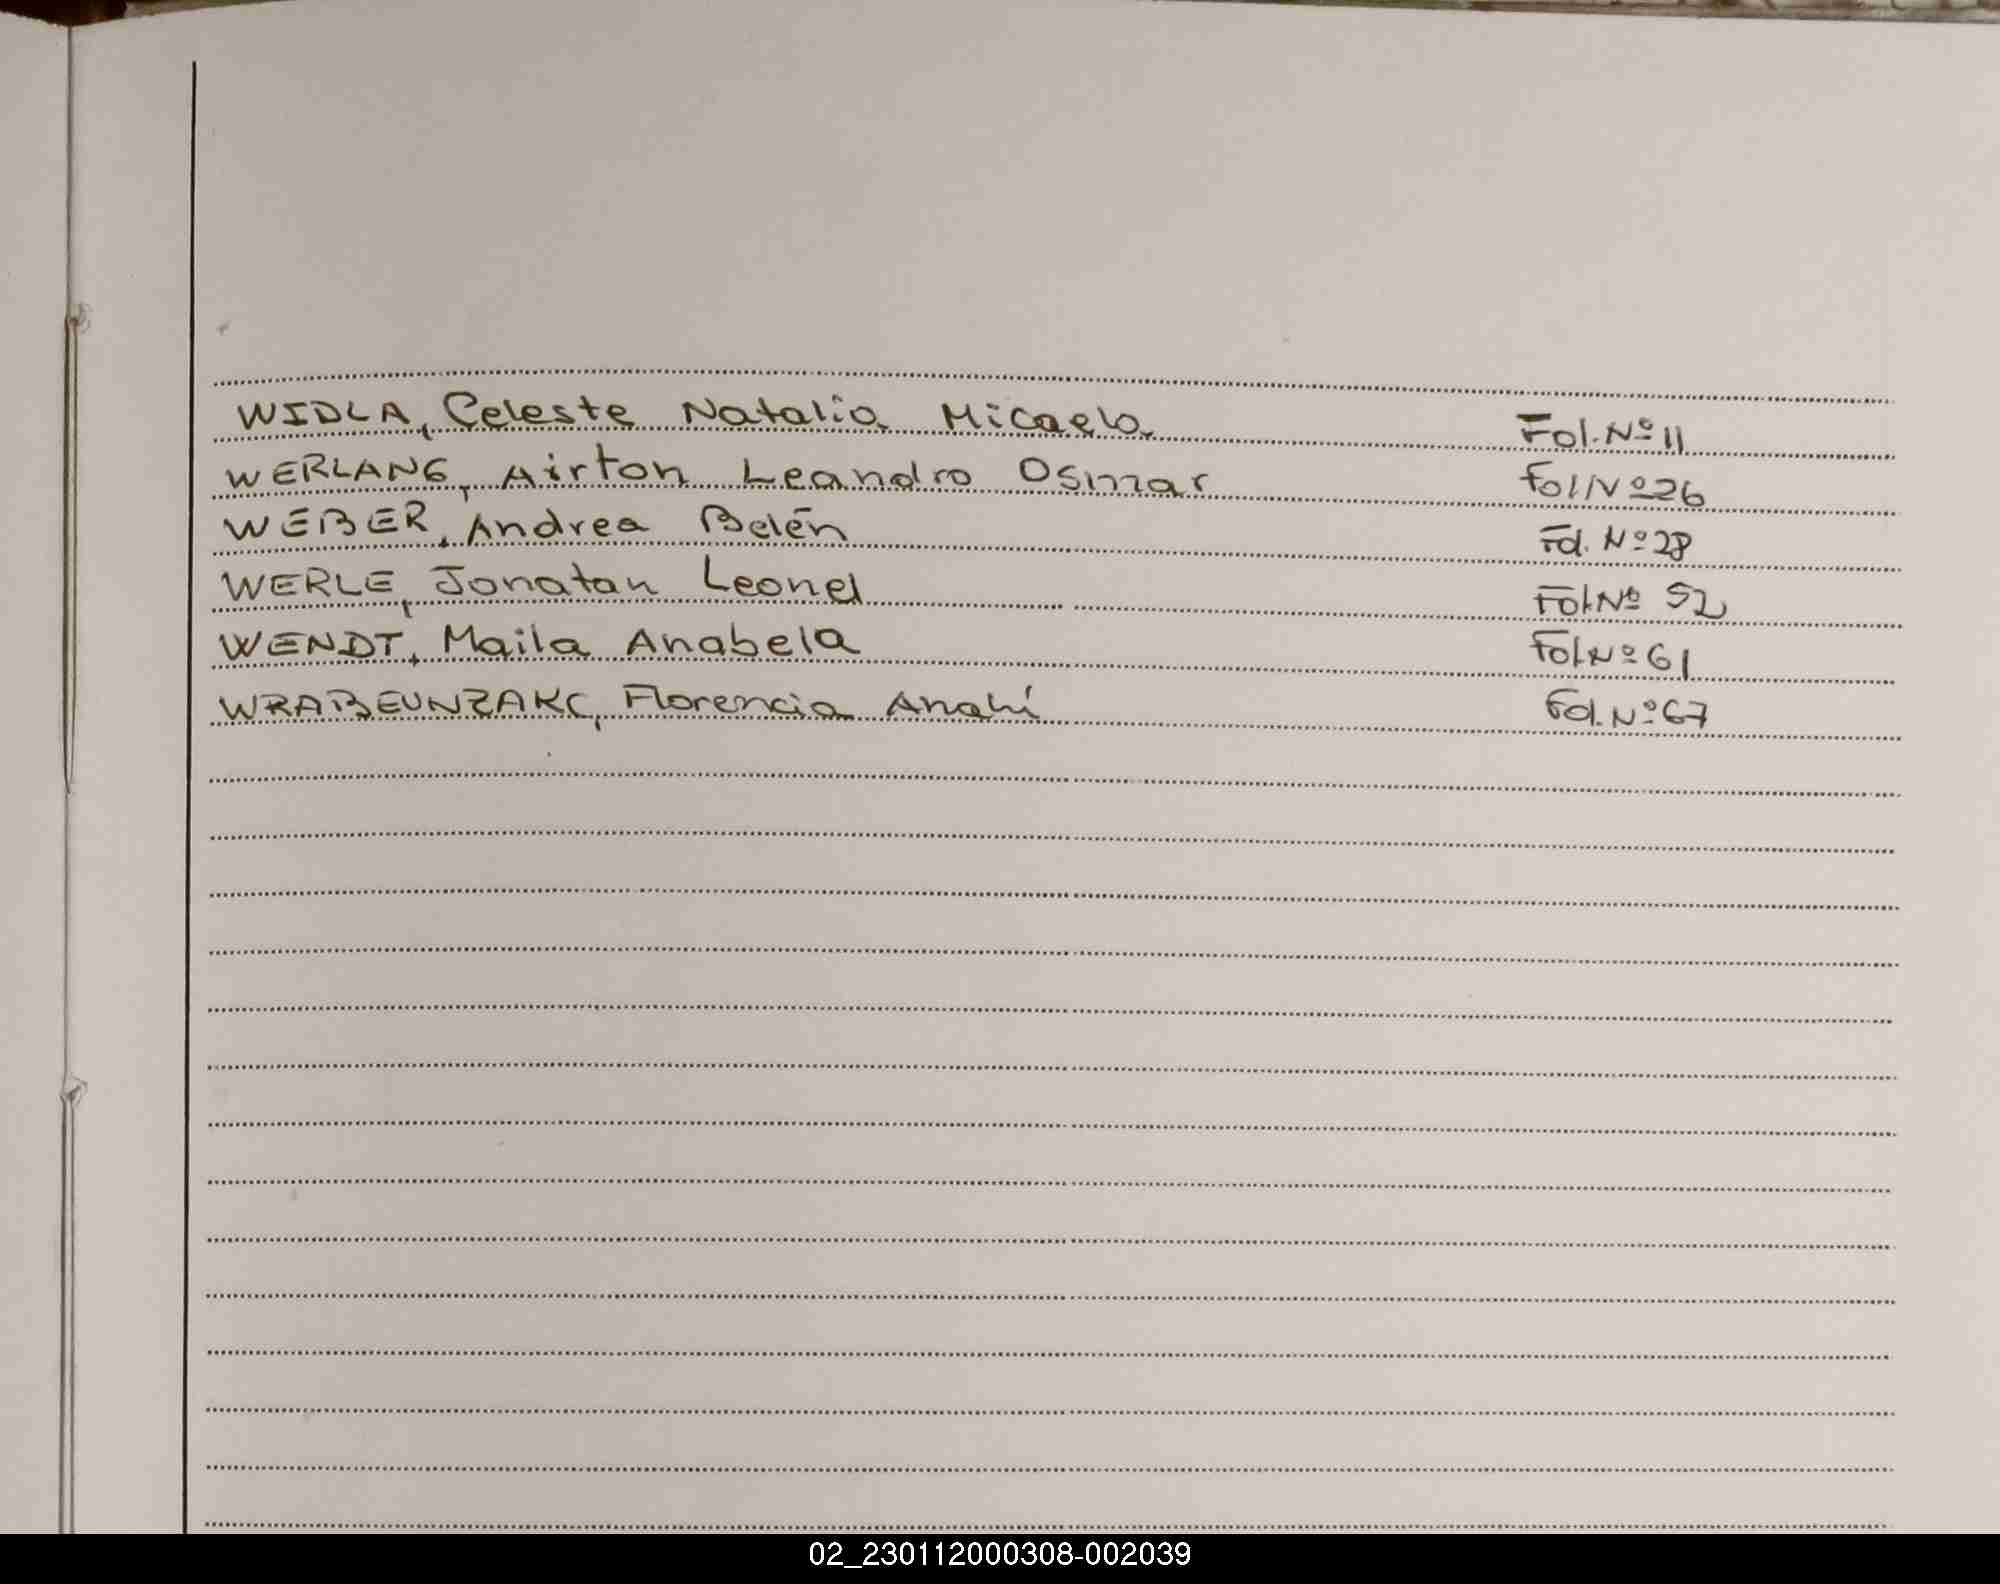 WIDLA, Celeste Natalia Micaela Fol. Nº 11
WERLANG, Airton Leandro Osmar Fol Nº 26
WEBER, Andrea Belén Fol. Nº 28
WERLE, Jonatan Leonel Fol. Nº 52
WENDT, Maila Anabela Fol. Nº 61
Florencia Anahí Fol. Nº 67
02_230112000308-002039